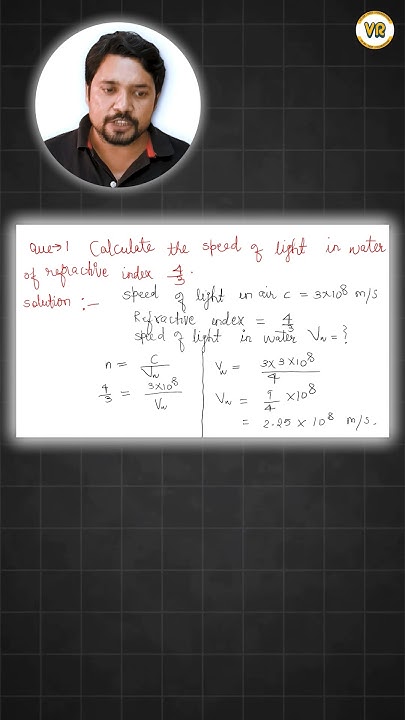 VR
Que→1 Calculate the speed of light in water
of refractive index 4/3.
solution :—
speed of light in air c = 3×10⁸ m/s
Refractive index = 4/3
speed of light in water Vw = ?
n = C/Vw
4/3 = 3×10⁸/Vw
Vw = 3×3×10⁸/4
Vw = 9/4 ×10⁸
= 2.25 × 10⁸ m/s.